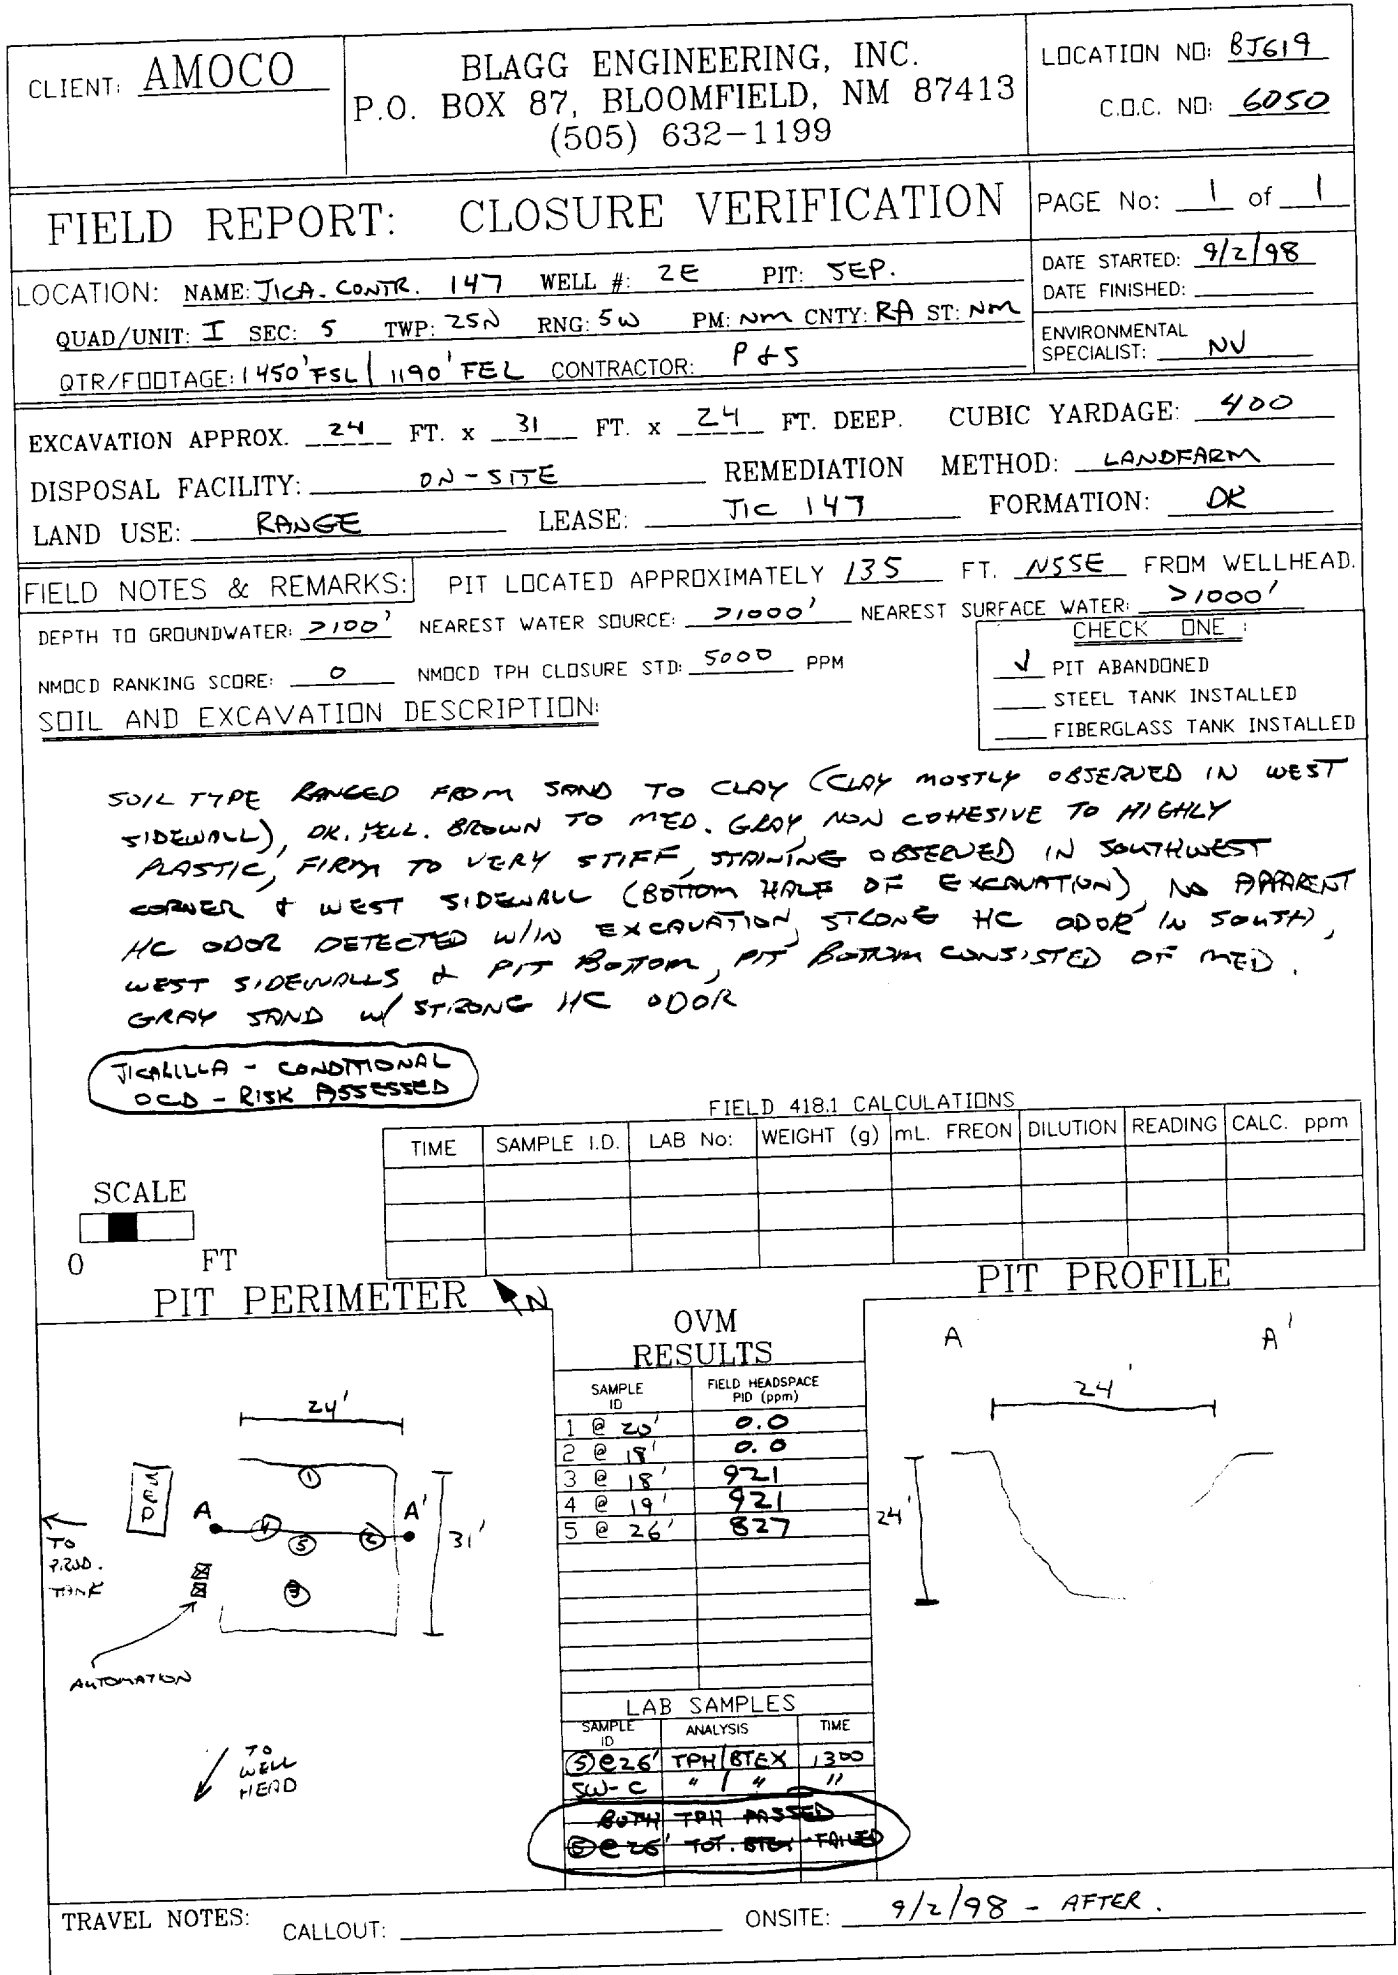 CLIENT: AMOCO
BLAGG ENGINEERING, INC.
P.O. BOX 87, BLOOMFIELD, NM 87413
(505) 632-1199
LOCATION NO: BJ619
C.O.C. NO: 6050
FIELD REPORT: CLOSURE VERIFICATION
PAGE No: 1 of 1
LOCATION: NAME: JICA. CONTR. 147 WELL #: 2E PIT: SEP.
QUAD/UNIT: I SEC: 5 TWP: 25N RNG: 5W PM: NM CNTY: RA ST: NM
QTR/FOOTAGE: 1450' FSL/ 1190' FEL CONTRACTOR: P & S
DATE STARTED: 9/2/98
DATE FINISHED:
ENVIRONMENTAL
SPECIALIST: NV
EXCAVATION APPROX. 24 FT. x 31 FT. x 24 FT. DEEP. CUBIC YARDAGE: 400
DISPOSAL FACILITY: ON-SITE REMEDIATION METHOD: LANDFARM
LAND USE: RANGE LEASE: JIC 147 FORMATION: DK
FIELD NOTES & REMARKS: PIT LOCATED APPROXIMATELY 135 FT. N55E FROM WELLHEAD.
DEPTH TO GROUNDWATER: >100' NEAREST WATER SOURCE: >1000' NEAREST SURFACE WATER: >1000'
NMOCD RANKING SCORE: 0 NMOCD TPH CLOSURE STD: 5000 PPM
CHECK ONE :
√ PIT ABANDONED
STEEL TANK INSTALLED
FIBERGLASS TANK INSTALLED
SOIL AND EXCAVATION DESCRIPTION:
SOIL TYPE RANGED FROM SAND TO CLAY (CLAY MOSTLY OBSERVED IN WEST
SIDEWALL), DK. YELL. BROWN TO MED. GRAY, NON COHESIVE TO HIGHLY
PLASTIC, FIRM TO VERY STIFF, STAINING OBSERVED IN SOUTHWEST
CORNER & WEST SIDEWALL (BOTTOM HALF OF EXCAVATION), NO APPARENT
HC ODOR DETECTED W/IN EXCAVATION, STRONG HC ODOR IN SOUTH,
WEST SIDEWALLS & PIT BOTTOM, PIT BOTTOM CONSISTED OF MED.
GRAY SAND W/ STRONG HC ODOR
JICARILLA - CONDITIONAL
OCD - RISK ASSESSED
FIELD 418.1 CALCULATIONS
TIME SAMPLE I.D. LAB No: WEIGHT (g) mL. FREON DILUTION READING CALC. ppm
SCALE
0 FT
PIT PERIMETER N
24'
PROD
A A'
1
4
5
2
3
31'
TO
PROD.
TANK
AUTOMATION
TO
WELL
HEAD
OVM
RESULTS
SAMPLE ID FIELD HEADSPACE PID (ppm)
1 @ 20' 0.0
2 @ 18' 0.0
3 @ 18' 921
4 @ 19' 921
5 @ 26' 827
LAB SAMPLES
SAMPLE ID ANALYSIS TIME
5 @ 26' TPH/BTEX 1300
SW-C " / " "
BOTH TPH PASSED
5 @ 26' TOT. BTEX - FAILED
PIT PROFILE
A A'
24'
24'
TRAVEL NOTES: CALLOUT: ONSITE: 9/2/98 - AFTER.